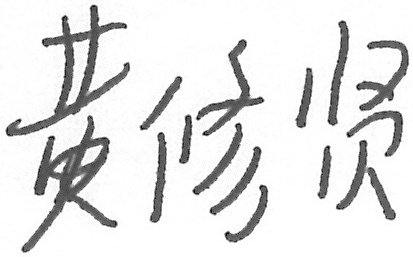 黄修贤